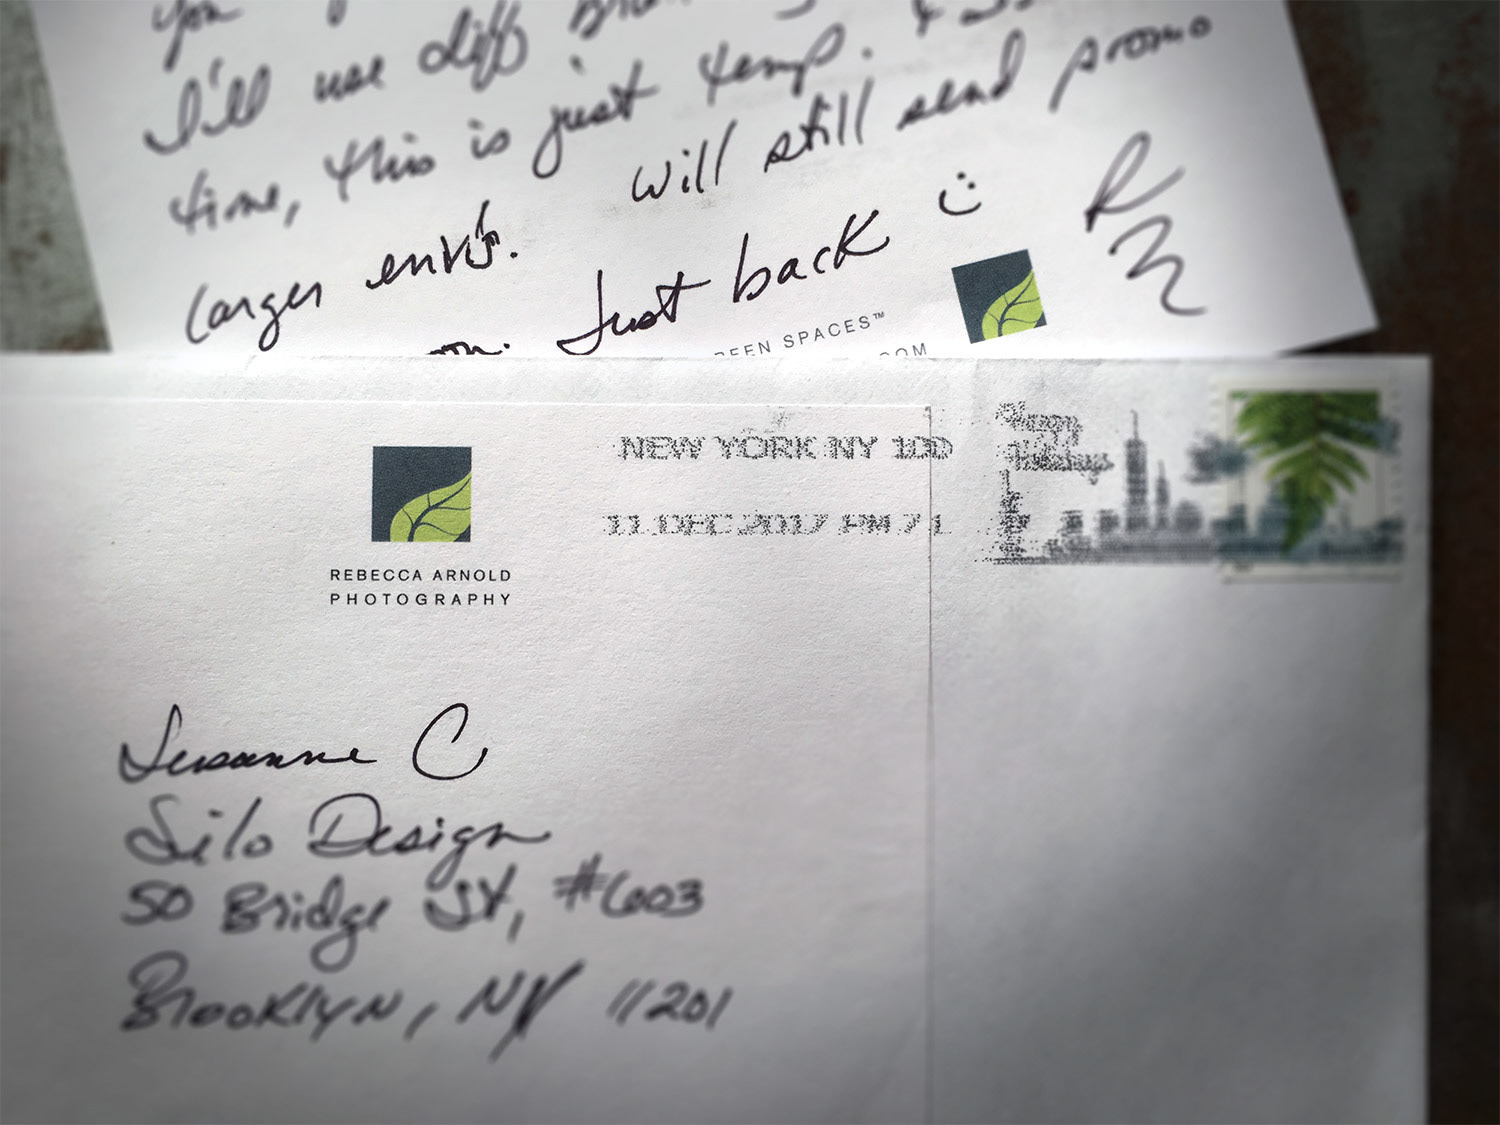 you
I'll use diff
time, this is just temp.
larger env's. will still send promo
soon. Just back :)
R
EEN SPACES™
COM
REBECCA ARNOLD
PHOTOGRAPHY
NEW YORK NY 100
11 DEC 2017 PM 7 L
Happy
Holidays
Susanne C
Silo Design
50 Bridge St, #603
Brooklyn, NY 11201